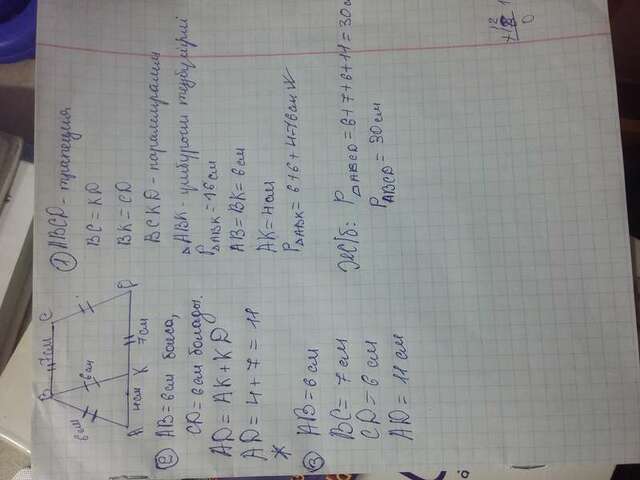 B 7см C
6см 6см
A 4см K 7см D
① ABCD - трапеция
BC = KD
BK = CD
BCKD - параллелограмм
△ABK - үшбұрыш теңбүйірлі
P△ABK = 16см
AB = BK = 6см
AK = 4см
P△ABK = 6+6+4=16см
② AB = 6см болса,
CD = 6см болады.
AD = AK + KD
AD = 4 + 7 = 11
*
③ AB = 6см
BC = 7см
CD = 6см
AD = 11см
Ж/б: P△ABCD = 6+7+6+11=30см
PABCD = 30см